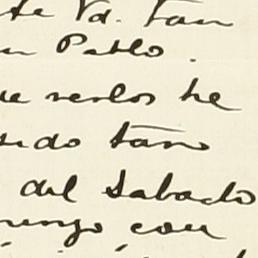 te Vd. tan
Pablo.
ue verlos he
ido tan
del Sabado
mingo, con